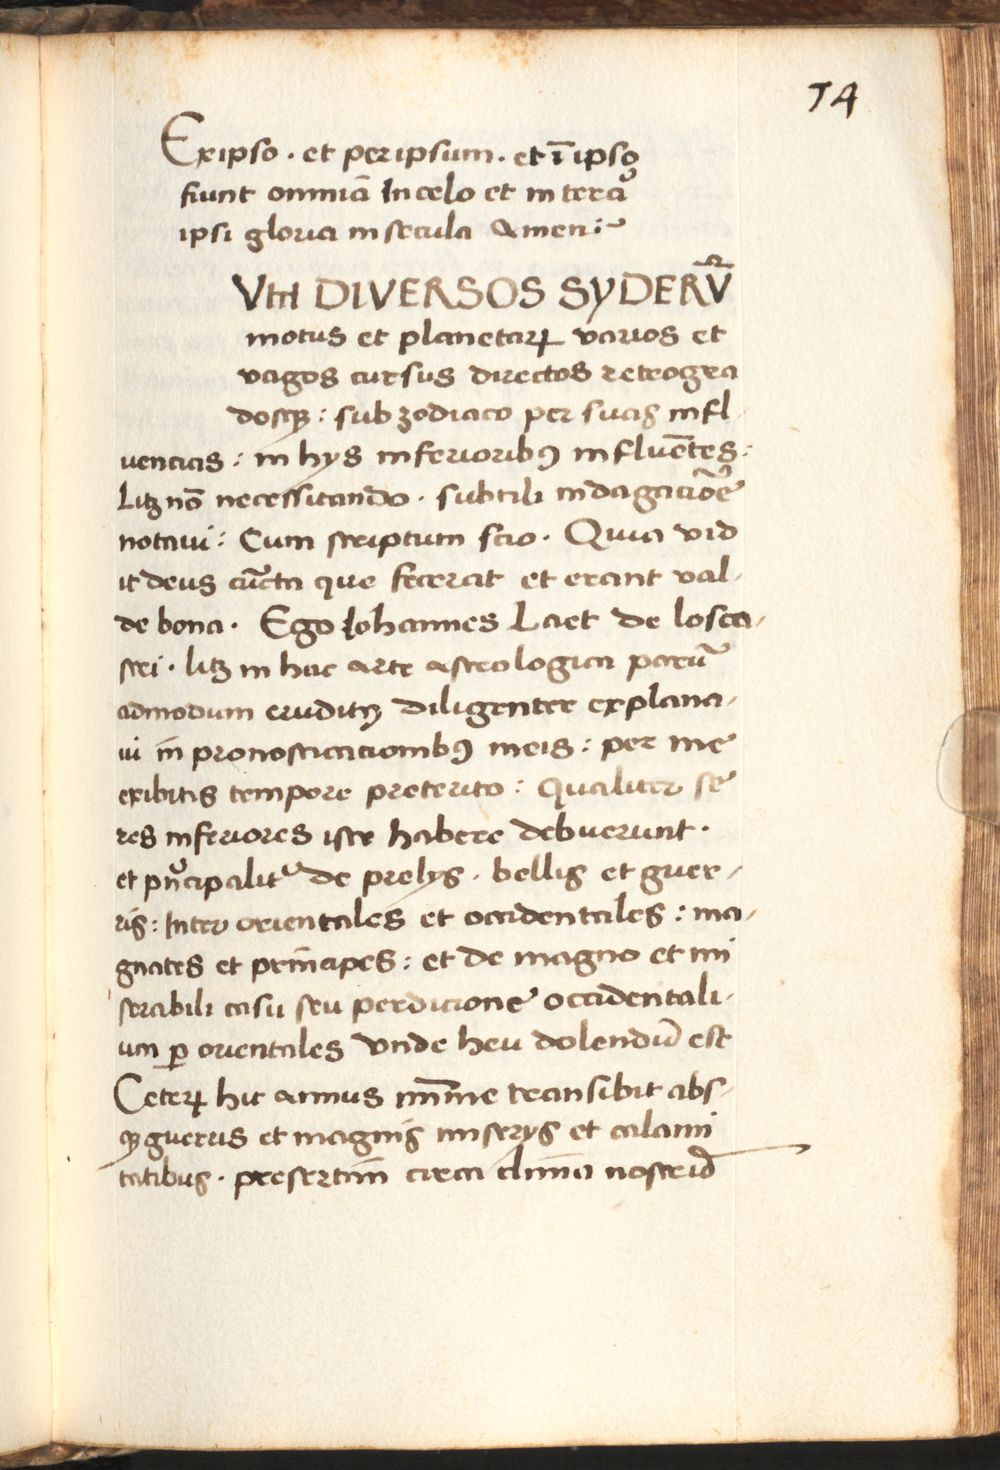 74
Ex ipso · et per ipsum · et ī ipso
fiunt omniā In celo et in terā
ipsi gloria in secula Amen :~
DIVERSOS SYDERŪ
motus et planetarꝝ varios et
vagos cursus directos retrogra
dosqꝫ : sub zodiaco per suas infl-
uencias : in hys inferioribꝰ influētes :
Litꝫ nō necessitando · subtili indagaciōe
notaui : Cum scriptum scio · Quia vid
it deus cūcta que fecerat et erant val-
de bona · Ego Johannes Laet de losca-
stri · litꝫ in hac arte astrologica parū
admodum eruditꝰ diligenter explana-
ui in pronosticacionibꝰ meis : per me
exibitis tempore preterito : Qualiter se
res inferiores iste habere debuerunt ·
et pͥncipalitͬ de prelys · bellis et guer-
ris : Inter orientales et occidentales : ma-
gnates et principes : et de magno et mi
serabili casu seu perdicione occidentali-
um ꝑ orientales Vnde heu dolendū est
Ceterꝝ hic annus mīme transibit abs-
qꝫ guerris et magnis miserys et calami
tatibus · presertim circa clima nostrū